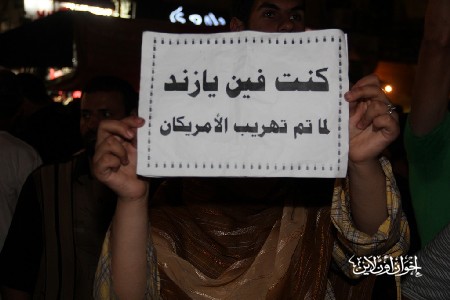 كنت فين يازند
لما تم تهريب الأمريكان
إخوان أون لاين